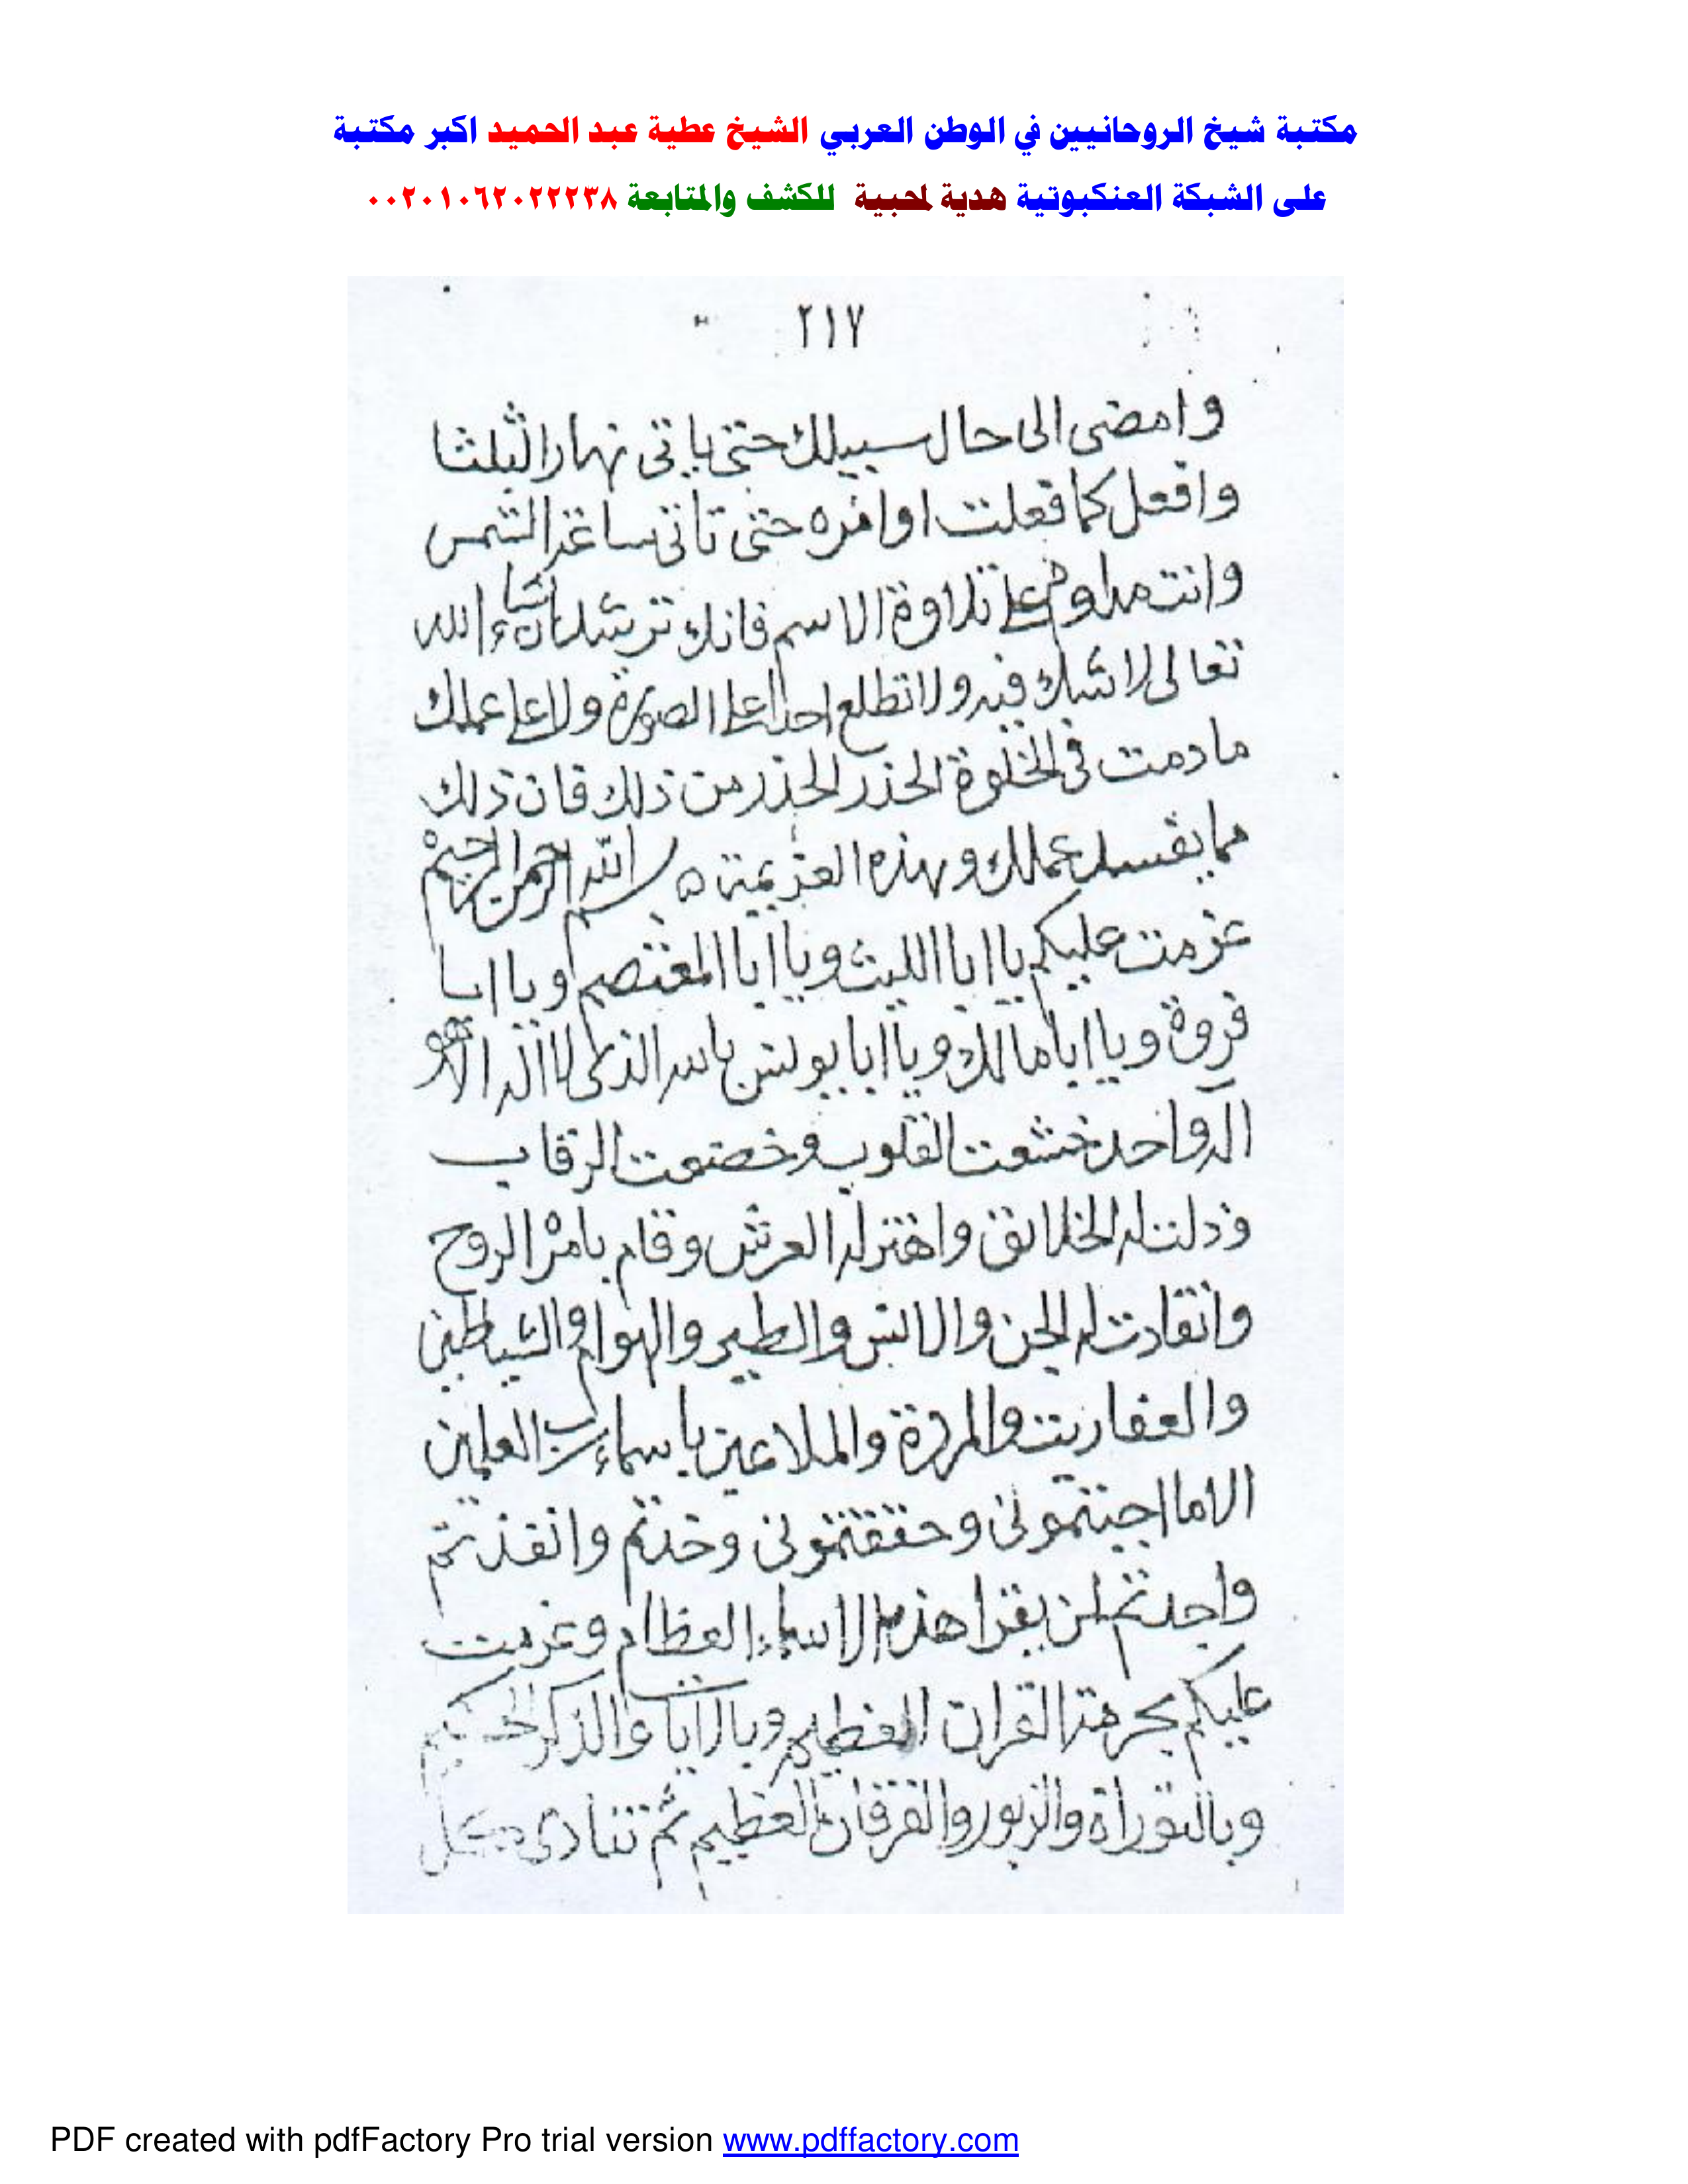 مكتبة شيخ الروحانيين في الوطن العربي الشيخ عطية عبد الحميد اكبر مكتبة
على الشبكة العنكبوتية هدية لمحبية للكشف والمتابعة ٠٠٢٠١٠٦٢٠٢٢٢٣٨
٢١٧
وامضى الى حال سبيلك حتى ياتى نهار الثلثا
وافعل كما فعلت اول مره حتى تاتى ساعة الشمس
وانت مداوم على تلاوة الاسم فانك ترشد ان شاء الله
تعالى لا شك فيه ولا تطلع احدا على الصورة ولا على عملك
ما دمت فى الخلوة الحذر الحذر من ذلك فان ذلك
مما يفسد عملك وهذه العزيمة بسم الله الرحمن الرحيم
عزمت عليكم يا ابا الليث ويا ابا المعتصم ويا ابا
فروة ويا ابا مالك ويا ابا يونس بالله الذى لا اله الا هو
اله واحد خشعت القلوب وخضعت الرقاب
وذلت له الخلائق واهتز له العرش وقام بامره الروح
وانقادت له الجن والانس والطير والهوام والشياطين
والعفاريت والمردة والملاعين باسماء رب العلمين
الاما اجبتمونى وحققتمونى وخدتم وانفذتم
واجدتم لمن يقرا هذه الاسماء العظام وعزمت
عليكم بحرمة القران العظيم وبالايات والذكر الحكيم
وبالتوراة والزبور والفرقان العظيم ثم تنادى
PDF created with pdfFactory Pro trial version www.pdffactory.com